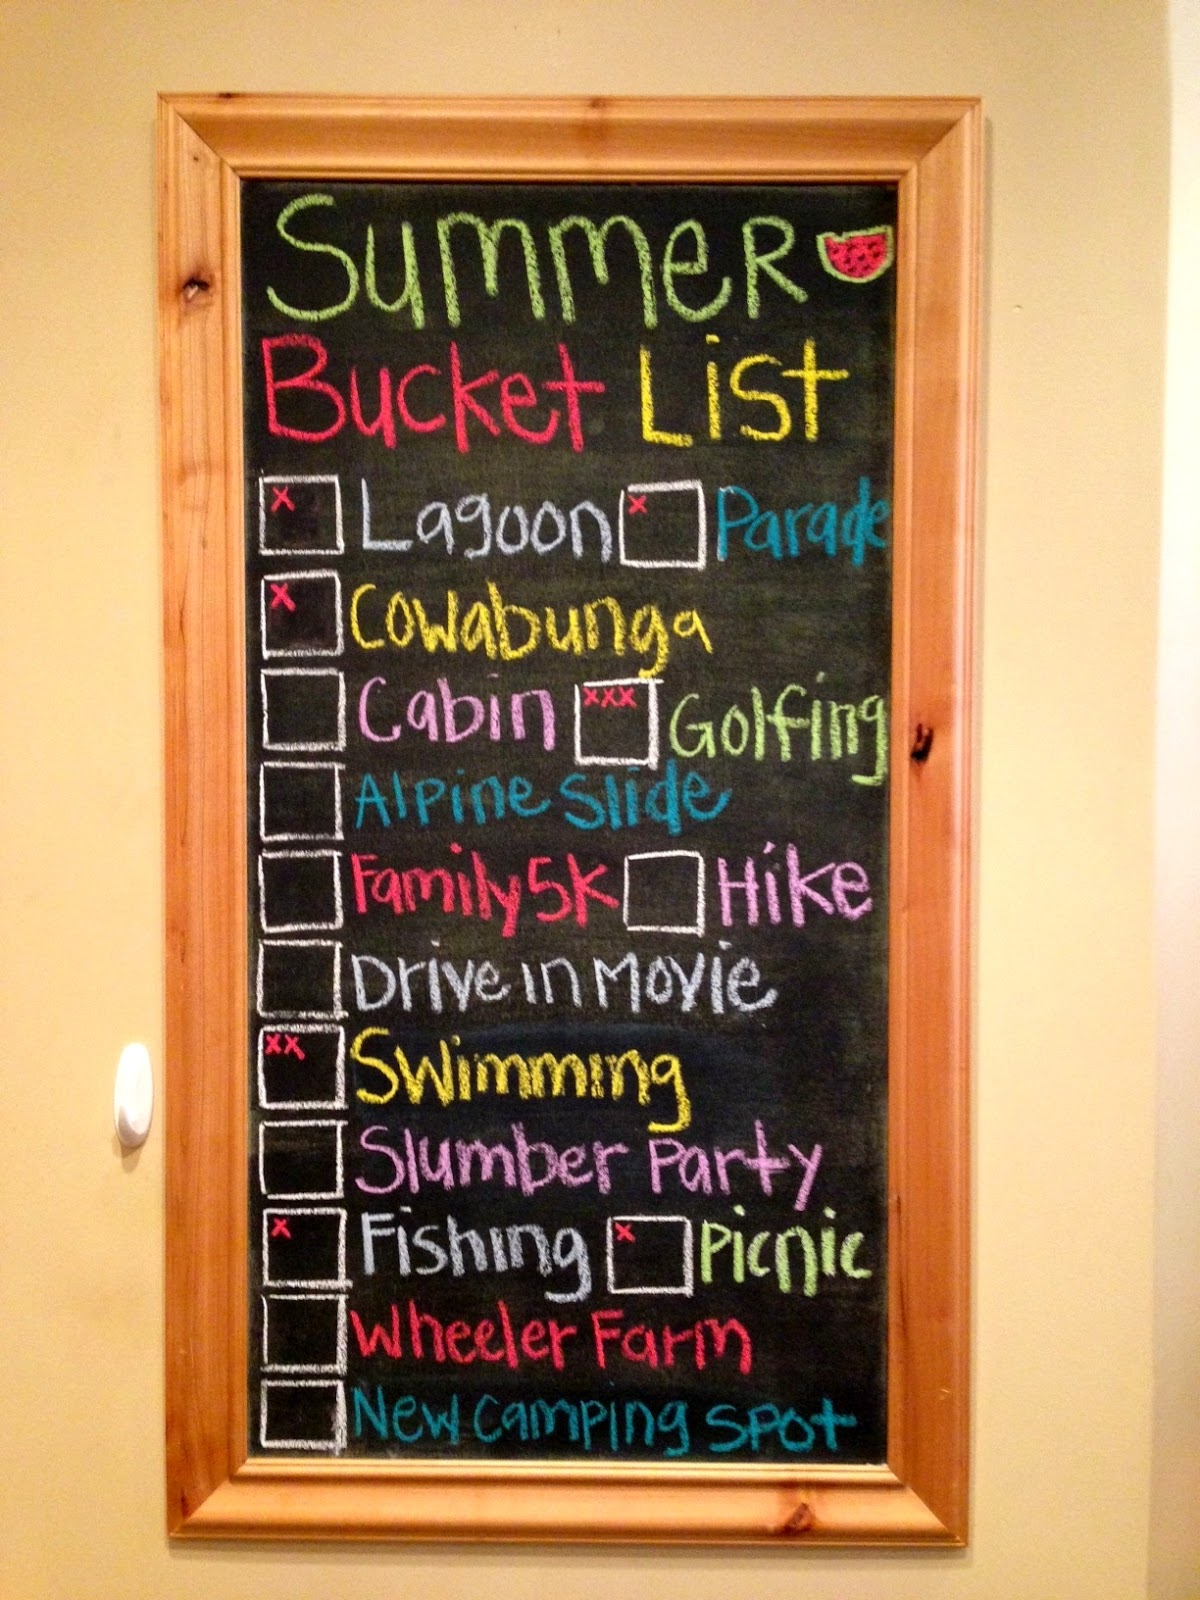 Summer
Bucket List
x Lagoon x Parade
x Cowabunga
Cabin xxx Golfing
Alpine Slide
Family 5K Hike
Drive in Movie
xx Swimming
Slumber Party
x Fishing x Picnic
Wheeler Farm
New Camping Spot